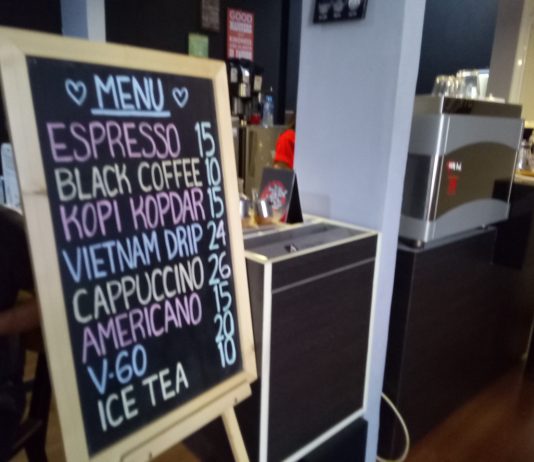 MENU
ESPRESSO 15
BLACK COFFEE 10
KOPI KOPDAR 15
VIETNAM DRIP 24
CAPPUCCINO 26
AMERICANO 15
V-60 20
ICE TEA 10
GOOD